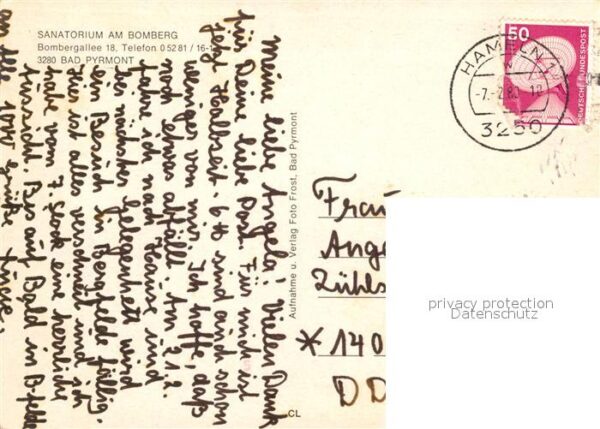 SANATORIUM AM BOMBERG
Bombergallee 18, Telefon 0 52 81 / 16-1
3280 BAD PYRMONT
Meine liebe Angela! Vielen Dank
für Deine liebe Post. Für mich ist
jetzt Halbzeit. 6 tt sind auch schon
weniger von mir. Ich hoffe, daß
noch etwas abfällt. Am 21.2.
fahre ich nach Hause und
bei nächster Gelegenheit wird
ein Besuch in Bergfelde fällig.
Hier ist alles verschneit und ich
habe vom 7. Stock eine herrliche
Aussicht. Bis auf Bald in B-felde
an alle 1000 Grüße
Aufnahme u. Verlag Foto Frost, Bad Pyrmont
CL
50
DEUTSCHE BUNDESPOST
HAMELN 1
-7.-2.8
3250
Frau
Ange
Zühls
*140
DD
privacy protection
Datenschutz